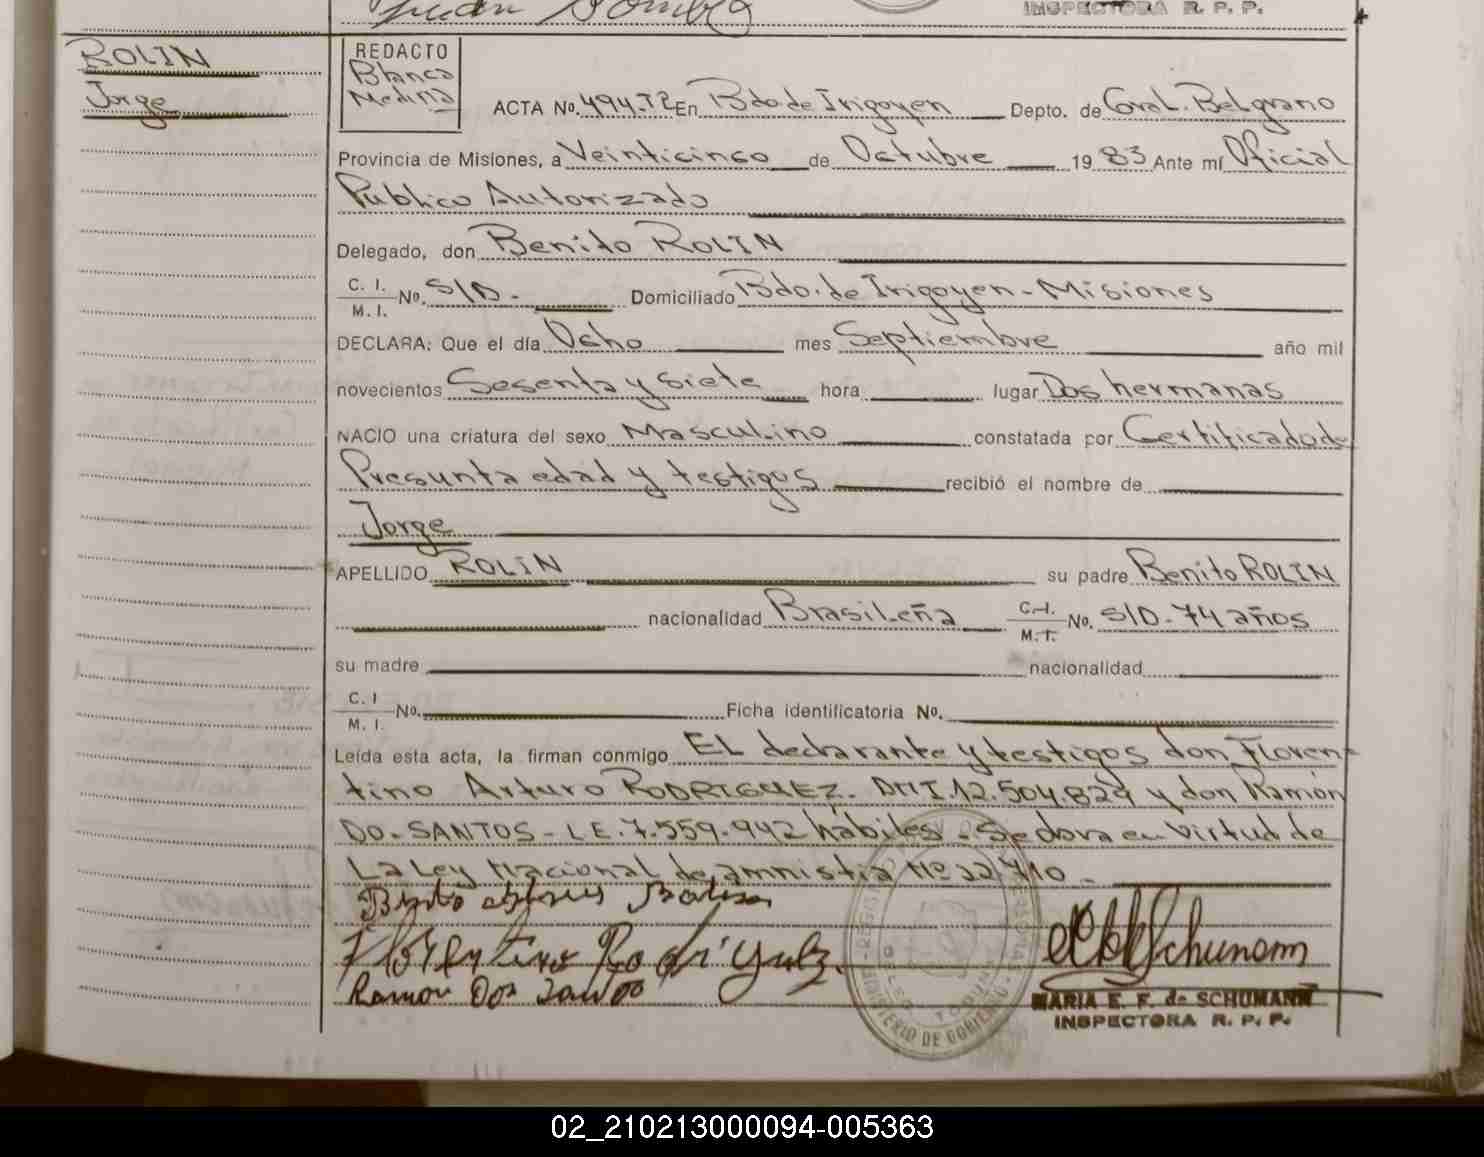 INSPECTORA R. P. P.
ROLIN
Jorge
REDACTO
Blanca
Medina
ACTA No. 494.T2 En Bdo. de Irigoyen Depto. de Gral. Belgrano
Provincia de Misiones, a Veinticinco de Octubre 1983 Ante mí Oficial
Publico Autorizado
Delegado, don Benito ROLIN
C. I.
M. I. No. S/D- Domiciliado Bdo. de Irigoyen - Misiones
DECLARA: Que el día Ocho mes Septiembre año mil
novecientos Sesenta y siete hora lugar Dos hermanas
NACIO una criatura del sexo Masculino constatada por Certificado de
Presunta edad y testigos recibió el nombre de
Jorge
APELLIDO ROLIN su padre Benito ROLIN
nacionalidad Brasileña C.I. M.I. No. S/D- 74 años
su madre nacionalidad
C. I
M. I. No. Ficha identificatoria No.
Leída esta acta, la firman conmigo El declarante y testigos don Floren-
tino Arturo RODRIGUEZ. DNI.12.504.829 y don Ramón
DO-SANTOS- LE.7.559.942 hábiles - Se dora en Virtud de
La Ley Nacional de amnistia Nº 22.710 -
Ramon Dos
Schumann
MARIA E. F. de SCHUMANN
INSPECTORA R. P. P.
MINISTERIO DE GOBIERNO
02_210213000094-005363